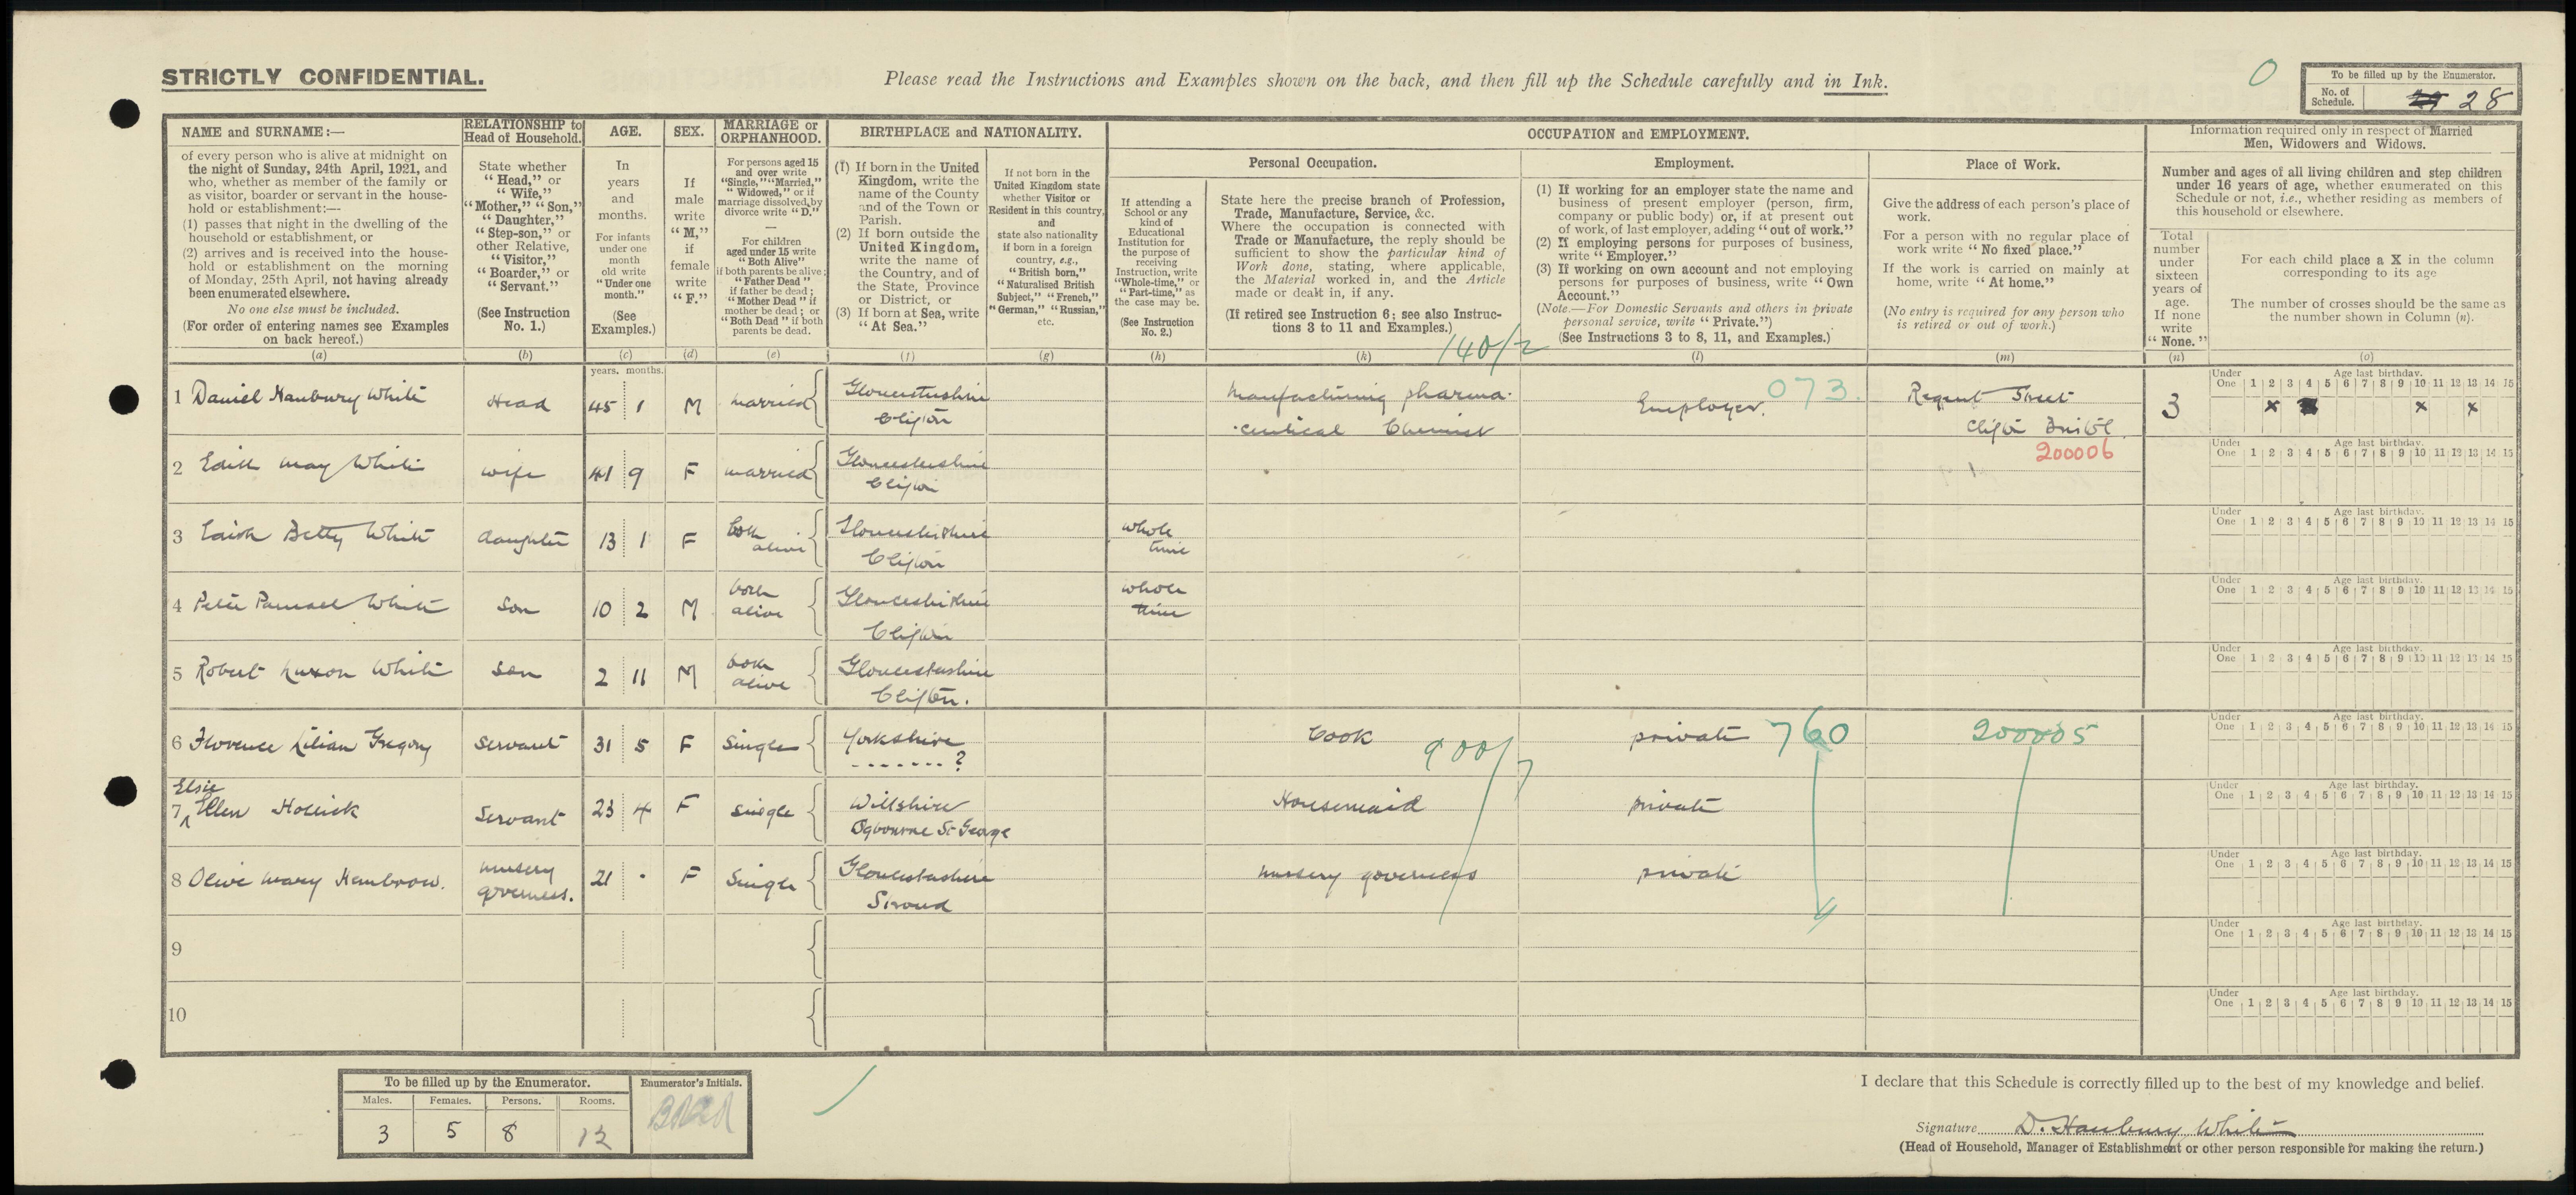 STRICTLY CONFIDENTIAL.
Please read the Instructions and Examples shown on the back, and then fill up the Schedule carefully and in Ink.
0
To be filled up by the Enumerator.
No. of Schedule. 28
NAME and SURNAME:—
of every person who is alive at midnight on
the night of Sunday, 24th April, 1921, and
who, whether as member of the family or
as visitor, boarder or servant in the house-
hold or establishment:—
(1) passes that night in the dwelling of the
household or establishment, or
(2) arrives and is received into the house-
hold or establishment on the morning
of Monday, 25th April, not having already
been enumerated elsewhere.
No one else must be included.
(For order of entering names see Examples
on back hereof.)
(a)
RELATIONSHIP to
Head of Household.
State whether
"Head," or
"Wife,"
"Mother," "Son,"
"Daughter,"
"Step-son," or
other Relative,
"Visitor,"
"Boarder," or
"Servant."
(See Instruction
No. 1.)
(b)
AGE.
In
years
and
months.
For infants
under one
month
old write
"Under one
month."
(See
Examples.)
(c)
SEX.
If
male
write
"M,"
if
female
write
"F."
(d)
MARRIAGE or
ORPHANHOOD.
For persons aged 15
and over write
"Single," "Married,"
"Widowed," or if
marriage dissolved by
divorce write "D."
—
For children
aged under 15 write
"Both Alive"
if both parents be alive;
"Father Dead"
if father be dead;
"Mother Dead" if
mother be dead; or
"Both Dead" if both
parents be dead.
(e)
BIRTHPLACE and NATIONALITY.
(1) If born in the United
Kingdom, write the
name of the County
and of the Town or
Parish.
(2) If born outside the
United Kingdom,
write the name of
the Country, and of
the State, Province
or District, or
(3) If born at Sea, write
"At Sea."
(f)
If not born in the
United Kingdom state
whether Visitor or
Resident in this country,
and
state also nationality
if born in a foreign
country, e.g.,
"British born,"
"Naturalised British
Subject," "French,"
"German," "Russian,"
etc.
(g)
OCCUPATION and EMPLOYMENT.
If attending a
School or any
kind of
Educational
Institution for
the purpose of
receiving
Instruction, write
"Whole-time," or
"Part-time," as
the case may be.
(See Instruction
No. 2.)
(h)
Personal Occupation.
State here the precise branch of Profession,
Trade, Manufacture, Service, &c.
Where the occupation is connected with
Trade or Manufacture, the reply should be
sufficient to show the particular kind of
Work done, stating, where applicable,
the Material worked in, and the Article
made or dealt in, if any.
(If retired see Instruction 6; see also Instruc-
tions 3 to 11 and Examples.)
(k)
140/2
Employment.
(1) If working for an employer state the name and
business of present employer (person, firm,
company or public body) or, if at present out
of work, of last employer, adding "out of work."
(2) If employing persons for purposes of business,
write "Employer."
(3) If working on own account and not employing
persons for purposes of business, write "Own
Account."
(Note.—For Domestic Servants and others in private
personal service, write "Private.")
(See Instructions 3 to 8, 11, and Examples.)
(l)
Place of Work.
Give the address of each person's place of
work.
For a person with no regular place of
work write "No fixed place."
If the work is carried on mainly at
home, write "At home."
(No entry is required for any person who
is retired or out of work.)
(m)
Information required only in respect of Married
Men, Widowers and Widows.
Number and ages of all living children and step children
under 16 years of age, whether enumerated on this
Schedule or not, i.e., whether residing as members of
this household or elsewhere.
Total
number
under
sixteen
years of
age.
If none
write
"None."
(n)
For each child place a X in the column
corresponding to its age
The number of crosses should be the same as
the number shown in Column (n).
(o)
years. months.
1 Daniel Hanbury White Head 45 1 M married Gloucestershire Clifton
Manufacturing pharma-
ceutical Chemist
Employer. 073
Regent Street
Clifton Bristol
3
Under One 1 2 3 4 5 6 7 8 9 10 11 12 13 14 15
Age last birthday.
x x x
200006
2 Edith May White wife 41 9 F married Gloucestershire Clifton
Under One 1 2 3 4 5 6 7 8 9 10 11 12 13 14 15
Age last birthday.
3 Betty White daughter 13 1 F both alive Gloucestershire Clifton whole time
Under One 1 2 3 4 5 6 7 8 9 10 11 12 13 14 15
Age last birthday.
4 Peter White son 10 2 M both alive Gloucestershire Clifton whole time
Under One 1 2 3 4 5 6 7 8 9 10 11 12 13 14 15
Age last birthday.
5 Robert Luxon White son 2 11 M both alive Gloucestershire Clifton.
Under One 1 2 3 4 5 6 7 8 9 10 11 12 13 14 15
Age last birthday.
6 Florence Lilian Gregory Servant 31 5 F Single Yorkshire ? Cook 900/7 private 760 200005
Under One 1 2 3 4 5 6 7 8 9 10 11 12 13 14 15
Age last birthday.
Elsie
7 Ellen Hollick Servant 23 4 F single Wiltshire Ogbourne St George Housemaid private
Under One 1 2 3 4 5 6 7 8 9 10 11 12 13 14 15
Age last birthday.
8 Olive Mary Hambrow. nursery governess. 21 - F Single Gloucestershire Stroud nursery governess private
Under One 1 2 3 4 5 6 7 8 9 10 11 12 13 14 15
Age last birthday.
9
Under One 1 2 3 4 5 6 7 8 9 10 11 12 13 14 15
Age last birthday.
10
Under One 1 2 3 4 5 6 7 8 9 10 11 12 13 14 15
Age last birthday.
To be filled up by the Enumerator.
Males. Females. Persons. Rooms.
3 5 8 12
Enumerator's Initials.
I declare that this Schedule is correctly filled up to the best of my knowledge and belief.
Signature D. Hanbury White
(Head of Household, Manager of Establishment or other person responsible for making the return.)